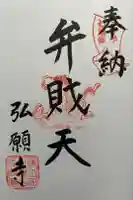 奉納
弁財天
弘願寺